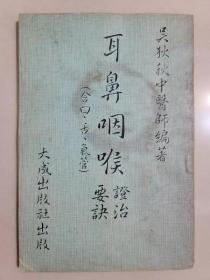 吳狄秋中醫師編著
耳鼻咽喉證治要訣
(合口·舌·氣管)
大成出版社出版